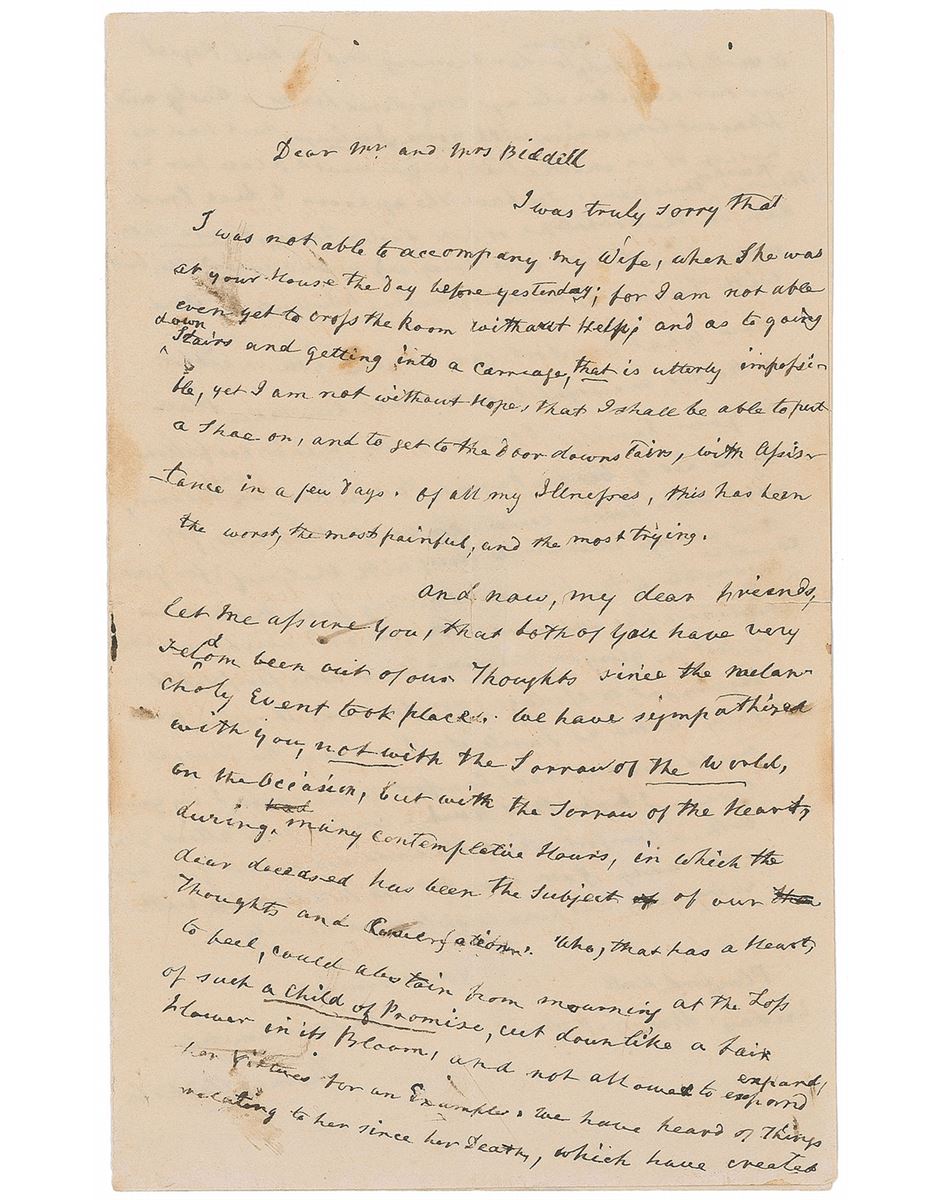 Dear Mr. and Mrs Biddell
I was truly sorry that
I was not able to accompany my Wife, when She was
at your House the Day before yesterday; for I am not able
even yet to cross the Room without Help; and as to going
down
Stairs and getting into a Carriage, that is utterly impossi-
ble, yet I am not without Hope, that I shall be able to put
a Shoe on, and to get to the Door down Stairs, with Assis-
tance in a few Days. Of all my Illnesses, this has been
the worst, the most painful, and the most trying.
And now, my dear Friends,
let me assure You, that both of you have very
Seldom been out of our Thoughts since the melan-
choly Event took place. We have sympathized
with you, not with the Sorrow of the World,
on the Occasion, but with the Sorrow of the Heart,
during had many contemplative Hours, in which the
dear deceased has been the Subject of of our tho
Thoughts and Conversations. Who, that has a Heart
to feel, could abstain from mourning at the Loss
of such a Child of Promise, cut down like a fair
Flower in its Bloom, and not allowed to expond
expand,
her Virtues for an Example. We have heard of Things
relating to her since her Death, which have created